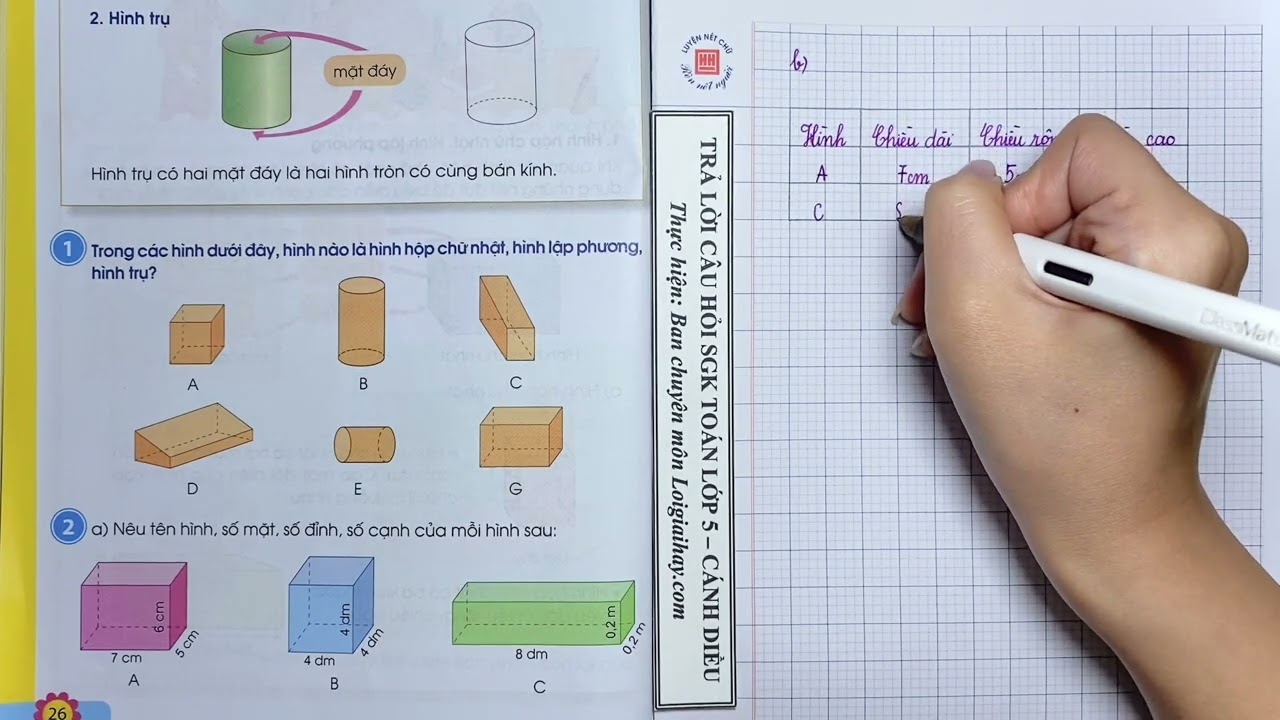 2. Hình trụ
mặt đáy
Hình trụ có hai mặt đáy là hai hình tròn có cùng bán kính.
1 Trong các hình dưới đây, hình nào là hình hộp chữ nhật, hình lập phương,
hình trụ?
A B C
D E G
2 a) Nêu tên hình, số mặt, số đỉnh, số cạnh của mỗi hình sau:
6 cm
5 cm
7 cm
A
4 dm
4 dm
4 dm
B
0,2 m
0,2 m
8 dm
C
26
LUYỆN NÉT CHỮ
Rèn nết người
TRẢ LỜI CÂU HỎI SGK TOÁN LỚP 5 – CÁNH DIỀU
Thực hiện: Ban chuyên môn Loigiaihay.com
b)
Hình Chiều dài Chiều cao
A 7cm 5
C